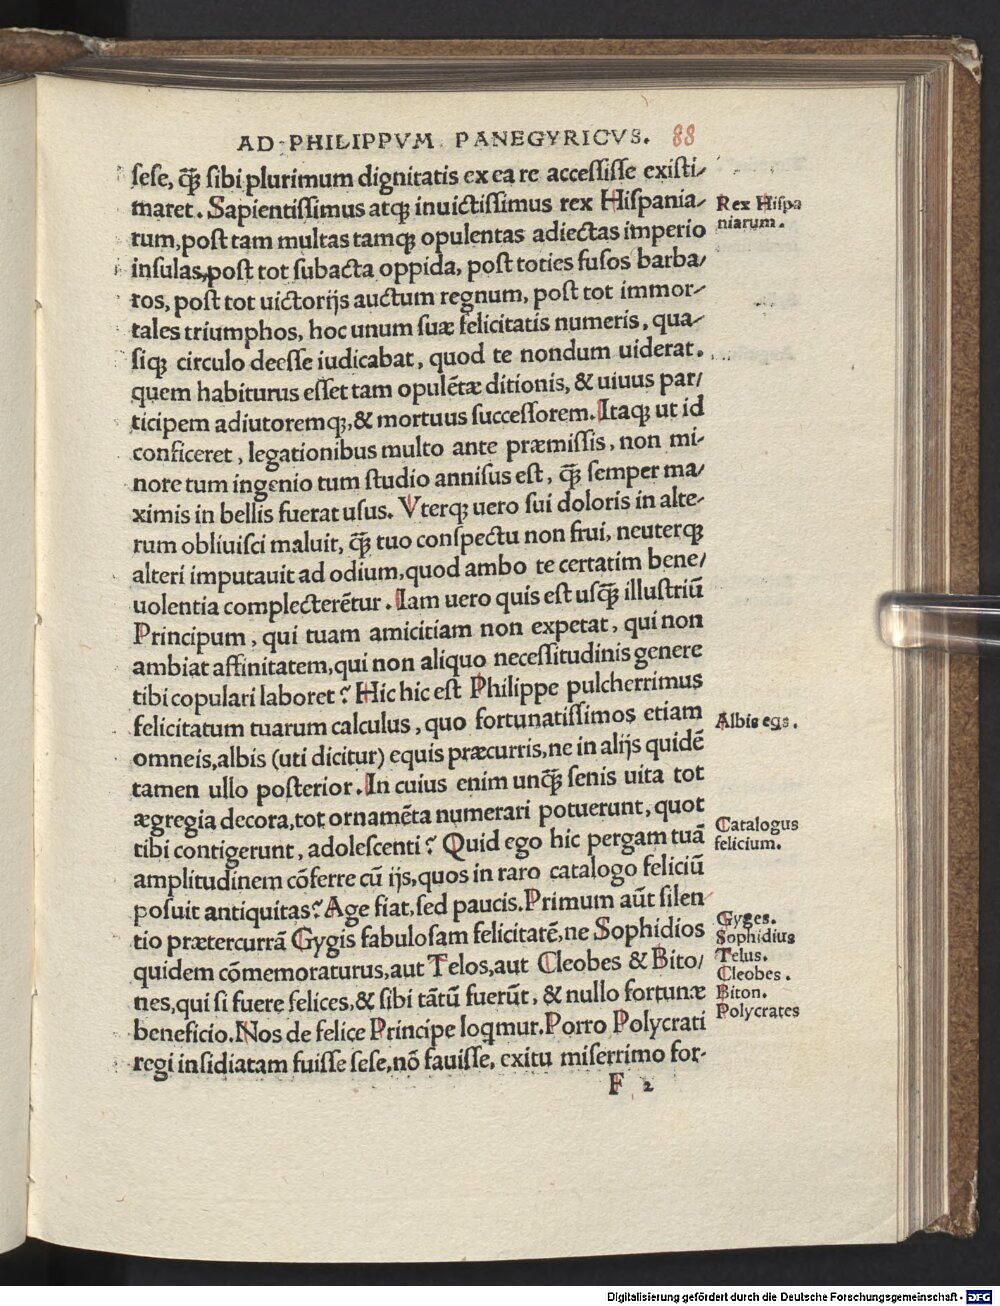 AD PHILIPPVM PANEGYRICVS. 88
sese, q̃ꝫ sibi plurimum dignitatis ex ea re accessisse existi/
maret. Sapientissimus atqꝫ inuictissimus rex Hispania/
rum, post tam multas tamqꝫ opulentas adiectas imperio
insulas, post tot subacta oppida, post toties fusos barba/
ros, post tot uictorijs auctum regnum, post tot immor/
tales triumphos, hoc unum suæ felicitatis numeris, qua/
siqꝫ circulo deesse iudicabat, quod te nondum uiderat.
quem habiturus esset tam opulẽtæ ditionis, & uiuus par/
ticipem adiutoremqꝫ, & mortuus successorem. Itaqꝫ ut id
conficeret, legationibus multo ante præmissis, non mi/
nore tum ingenio tum studio annisus est, q̃ꝫ semper ma/
ximis in bellis fuerat usus. Vterqꝫ uero sui doloris in alte/
rum obliuisci maluit, q̃ꝫ tuo conspectu non frui, neuterqꝫ
alteri imputauit ad odium, quod ambo te certatim bene/
uolentia complecterẽtur. Iam uero quis est usq̃ꝫ illustriũ
Principum, qui tuam amicitiam non expetat, qui non
ambiat affinitatem, qui non aliquo necessitudinis genere
tibi copulari laboret? Hic hic est Philippe pulcherrimus
felicitatum tuarum calculus, quo fortunatissimos etiam
omneis, albis (uti dicitur) equis præcurris, ne in alijs quidẽ
tamen ullo posterior. In cuius enim unq̃ꝫ senis uita tot
ægregia decora, tot ornamẽta numerari potuerunt, quot
tibi contigerunt, adolescenti? Quid ego hic pergam tuã
amplitudinem cõferre cũ ijs, quos in raro catalogo feliciũ
posuit antiquitas? Age fiat, sed paucis. Primum aũt silen
tio prætercurrã Gygis fabulosam felicitatẽ, ne Sophidios
quidem cõmemoraturus, aut Telos, aut Cleobes & Bito/
nes, qui si fuere felices, & sibi tãtũ fuerũt, & nullo fortunæ
beneficio. Nos de felice Principe loqmur. Porro Polycrati
regi insidiatam fuisse sese, nõ fauisse, exitu miserrimo for-
F 2
Rex Hispa
niarum.
Albis eqs.
Catalogus
felicium.
Gyges.
Sophidius
Telus.
Cleobes.
Biton.
Polycrates
Digitalisierung gefördert durch die Deutsche Forschungsgemeinschaft - DFG